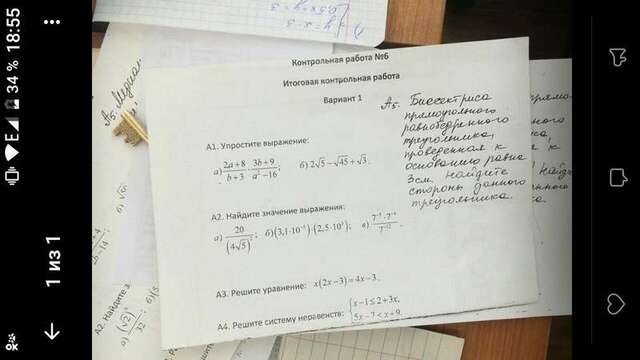 18:55
34 %
1 из 1
Контрольная работа №6
Итоговая контрольная работа
Вариант 1
А1. Упростите выражение:
а) (2a+8)/(b+3) · (3b+9)/(a²−16); б) 2√5−√45+√3.
А2. Найдите значение выражения:
а) 20/(4√5)²; б)(3,1·10⁻⁵)·(2,5·10³);
А3. Решите уравнение: x(2x−3)=4x−3.
А4. Решите систему неравенств: { x−1≤2+3x,
5x−7<x+9.
А5. Биссектриса
прямоугольного
равнобедренного
треугольника,
проведенная к
основанию равна
3см. Найдите
стороны данного
треугольника.
А5. Медиан
А2. Найдите з